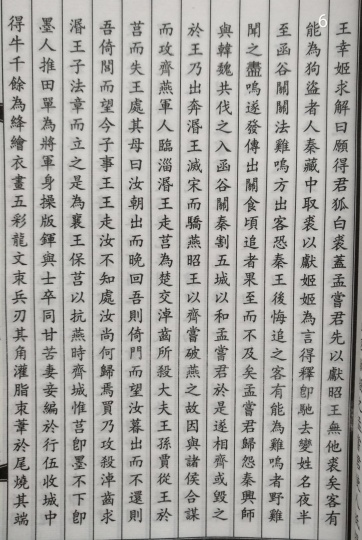 王幸姬求解曰願得君狐白裘蓋孟嘗君先以獻昭王無他裘矣客有
能為狗盜者入秦藏中取裘以獻姬姬為言得釋卽馳去變姓名夜半
至函谷關關法雞鳴方出客恐秦王後悔追之客有能為雞鳴者野雞
聞之盡鳴遂發傳出關食頃追者果至而不及矣孟嘗君歸怨秦興師
與韓魏共伐之入函谷關秦割五城以和孟嘗君於是遂相齊或毀之
於王乃出奔湣王滅宋而驕燕昭王以齊嘗破燕之故因與諸侯合謀
而攻齊燕軍入臨淄湣王走莒為楚交淖齒所殺大夫王孫賈從王於
莒而失王處其母曰汝朝出而晚回吾則倚門而望汝暮出而不還則
吾倚閭而望今子事王王走汝不知處汝尚何歸焉賈乃攻殺淖齒求
湣王子法章而立之是為襄王保莒以抗燕時齊城惟莒卽墨不下卽
墨人推田單為將軍身操版鍤與士卒同甘苦妻妾編於行伍收城中
得牛千餘為絳繒衣畫五彩龍文束兵刃其角灌脂束葦於尾燒其端
6